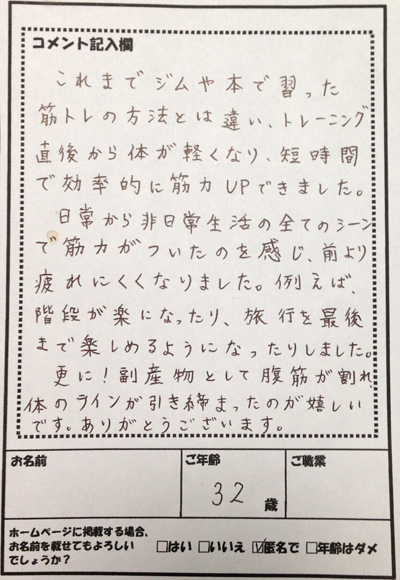 コメント記入欄
これまでジムや本で習った
筋トレの方法とは違い、トレーニング
直後から体が軽くなり、短時間
で効率的に筋力UPできました。
日常から非日常生活の全てのシーン
で筋力がついたのを感じ、前より
疲れにくくなりました。例えば、
階段が楽になったり、旅行を最後
まで楽しめるようになったりしました。
更に！副産物として腹筋が割れ
体のラインが引き締まったのが嬉しい
です。ありがとうございます。
お名前 ご年齢 ご職業
32歳
ホームページに掲載する場合、
お名前を載せてもよろしい
でしょうか？
□はい □いいえ ☑匿名で □年齢はダメ